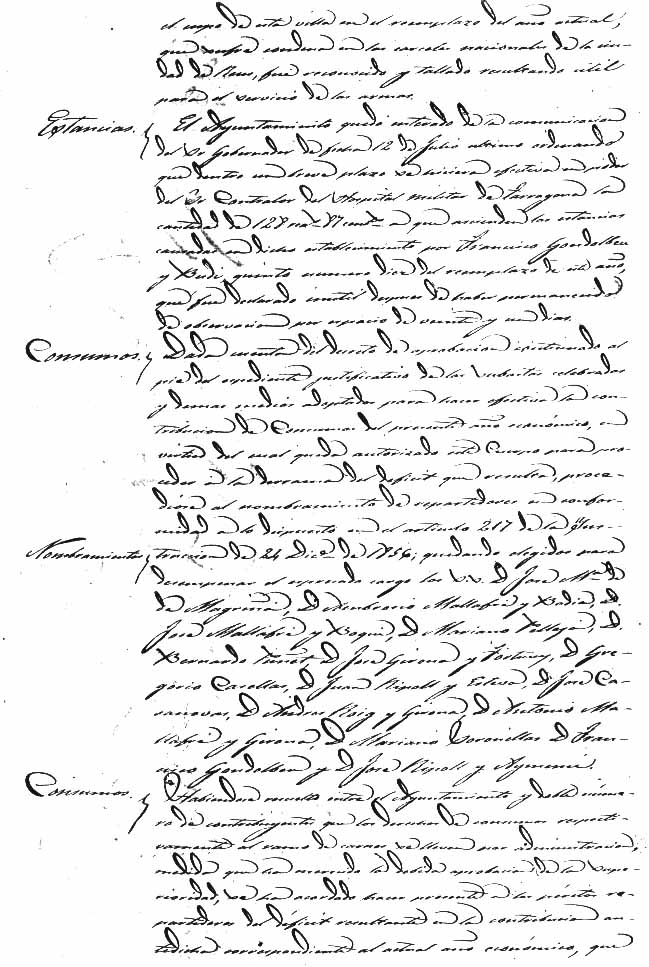 el cupo de esta villa en el reemplazo del año actual,
que sufre condena en las carceles nacionales de la ciu-
dad de Reus, fue reconocido y tallado resultando util
para el servicio de las armas.
Estancias. El Ayuntamiento quedó enterado de la comunicacion
del Sr Gobernador de fecha 12 de Julio ultimo ordenando
que dentro un breve plazo se hiciera efectiva en poder
del Sr Contralor del Hospital militar de Tarragona la
cantidad de 128 rs 87 cents a que ascienden las estancias
causadas en dicho establecimiento por Francisco Gondolbeu
y Budi, quinto numero diez del reemplazo de este año,
que fué declarado inutil despues de haber permanecido
de observacion por espacio de veinte y un dias.
Consumos. Dada cuenta del decreto de aprobacion continuado al
pie del espediente justificativo de las subastas celebradas
y demas medios adoptados para hacer efectiva la con-
tribucion de Consumos del presente año económico, en
virtud del cual queda autorizado este Cuerpo para pro-
ceder a la derrama del deficit que resulta, proce-
diose al nombramiento de repartidores en confor-
midad a lo dispuesto en el articulo 217 de la Ins-
Nombramientos truccion de 24 Dice de 1856, quedando elegidos para
desempeñar el espresado cargo los S.S. D. José Ma de
de Magriñá, D. Ambrosio Mallafré y Badia, D.
José Mallafré y Boqué, D. Mariano D.
Bernardo D José Girona y Fortuny, D Gre-
gorio Casellas, D Juan Ripoll y Esteva, D José Ca-
sanovas, D Andres Roig y Girona, D Antonio Ma-
llafré y Girona, D Mariano D Fran-
cisco Gondolbeu y D José Ripoll y Aymemi.
Consumos. Habiendose resuelto entre el Ayuntamiento y doble núme-
ro de contribuyentes que los derechos de consumos respecti-
vamente al ramo de carnes se lleven por administracion,
medida que ha merecido la debida aprobacion de la supe-
rioridad, se ha acordado hacer presente a los peritos re-
partidores del déficit resultante en la contribucion an-
tedicha correspondiente al actual año económico, que